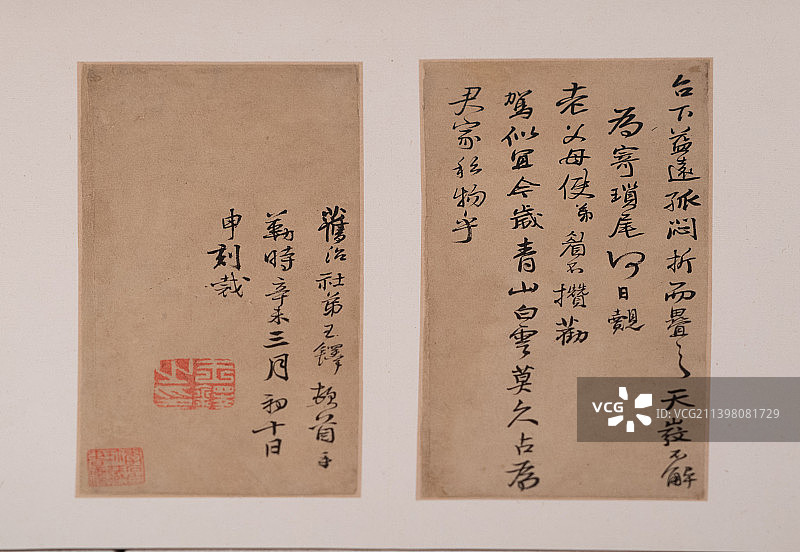 台下益遠孤悶折而疊之天嚴不解
為寄瑣尾何日覿
老父母便弟看不攢勸
駕似宜今歲青山白雲莫久占為
尹家私物乎
舊治社弟王鐸頓首手
勒時辛未三月初十日
申刻哉
王鐸之印
VCG
ID:VCG211398081729